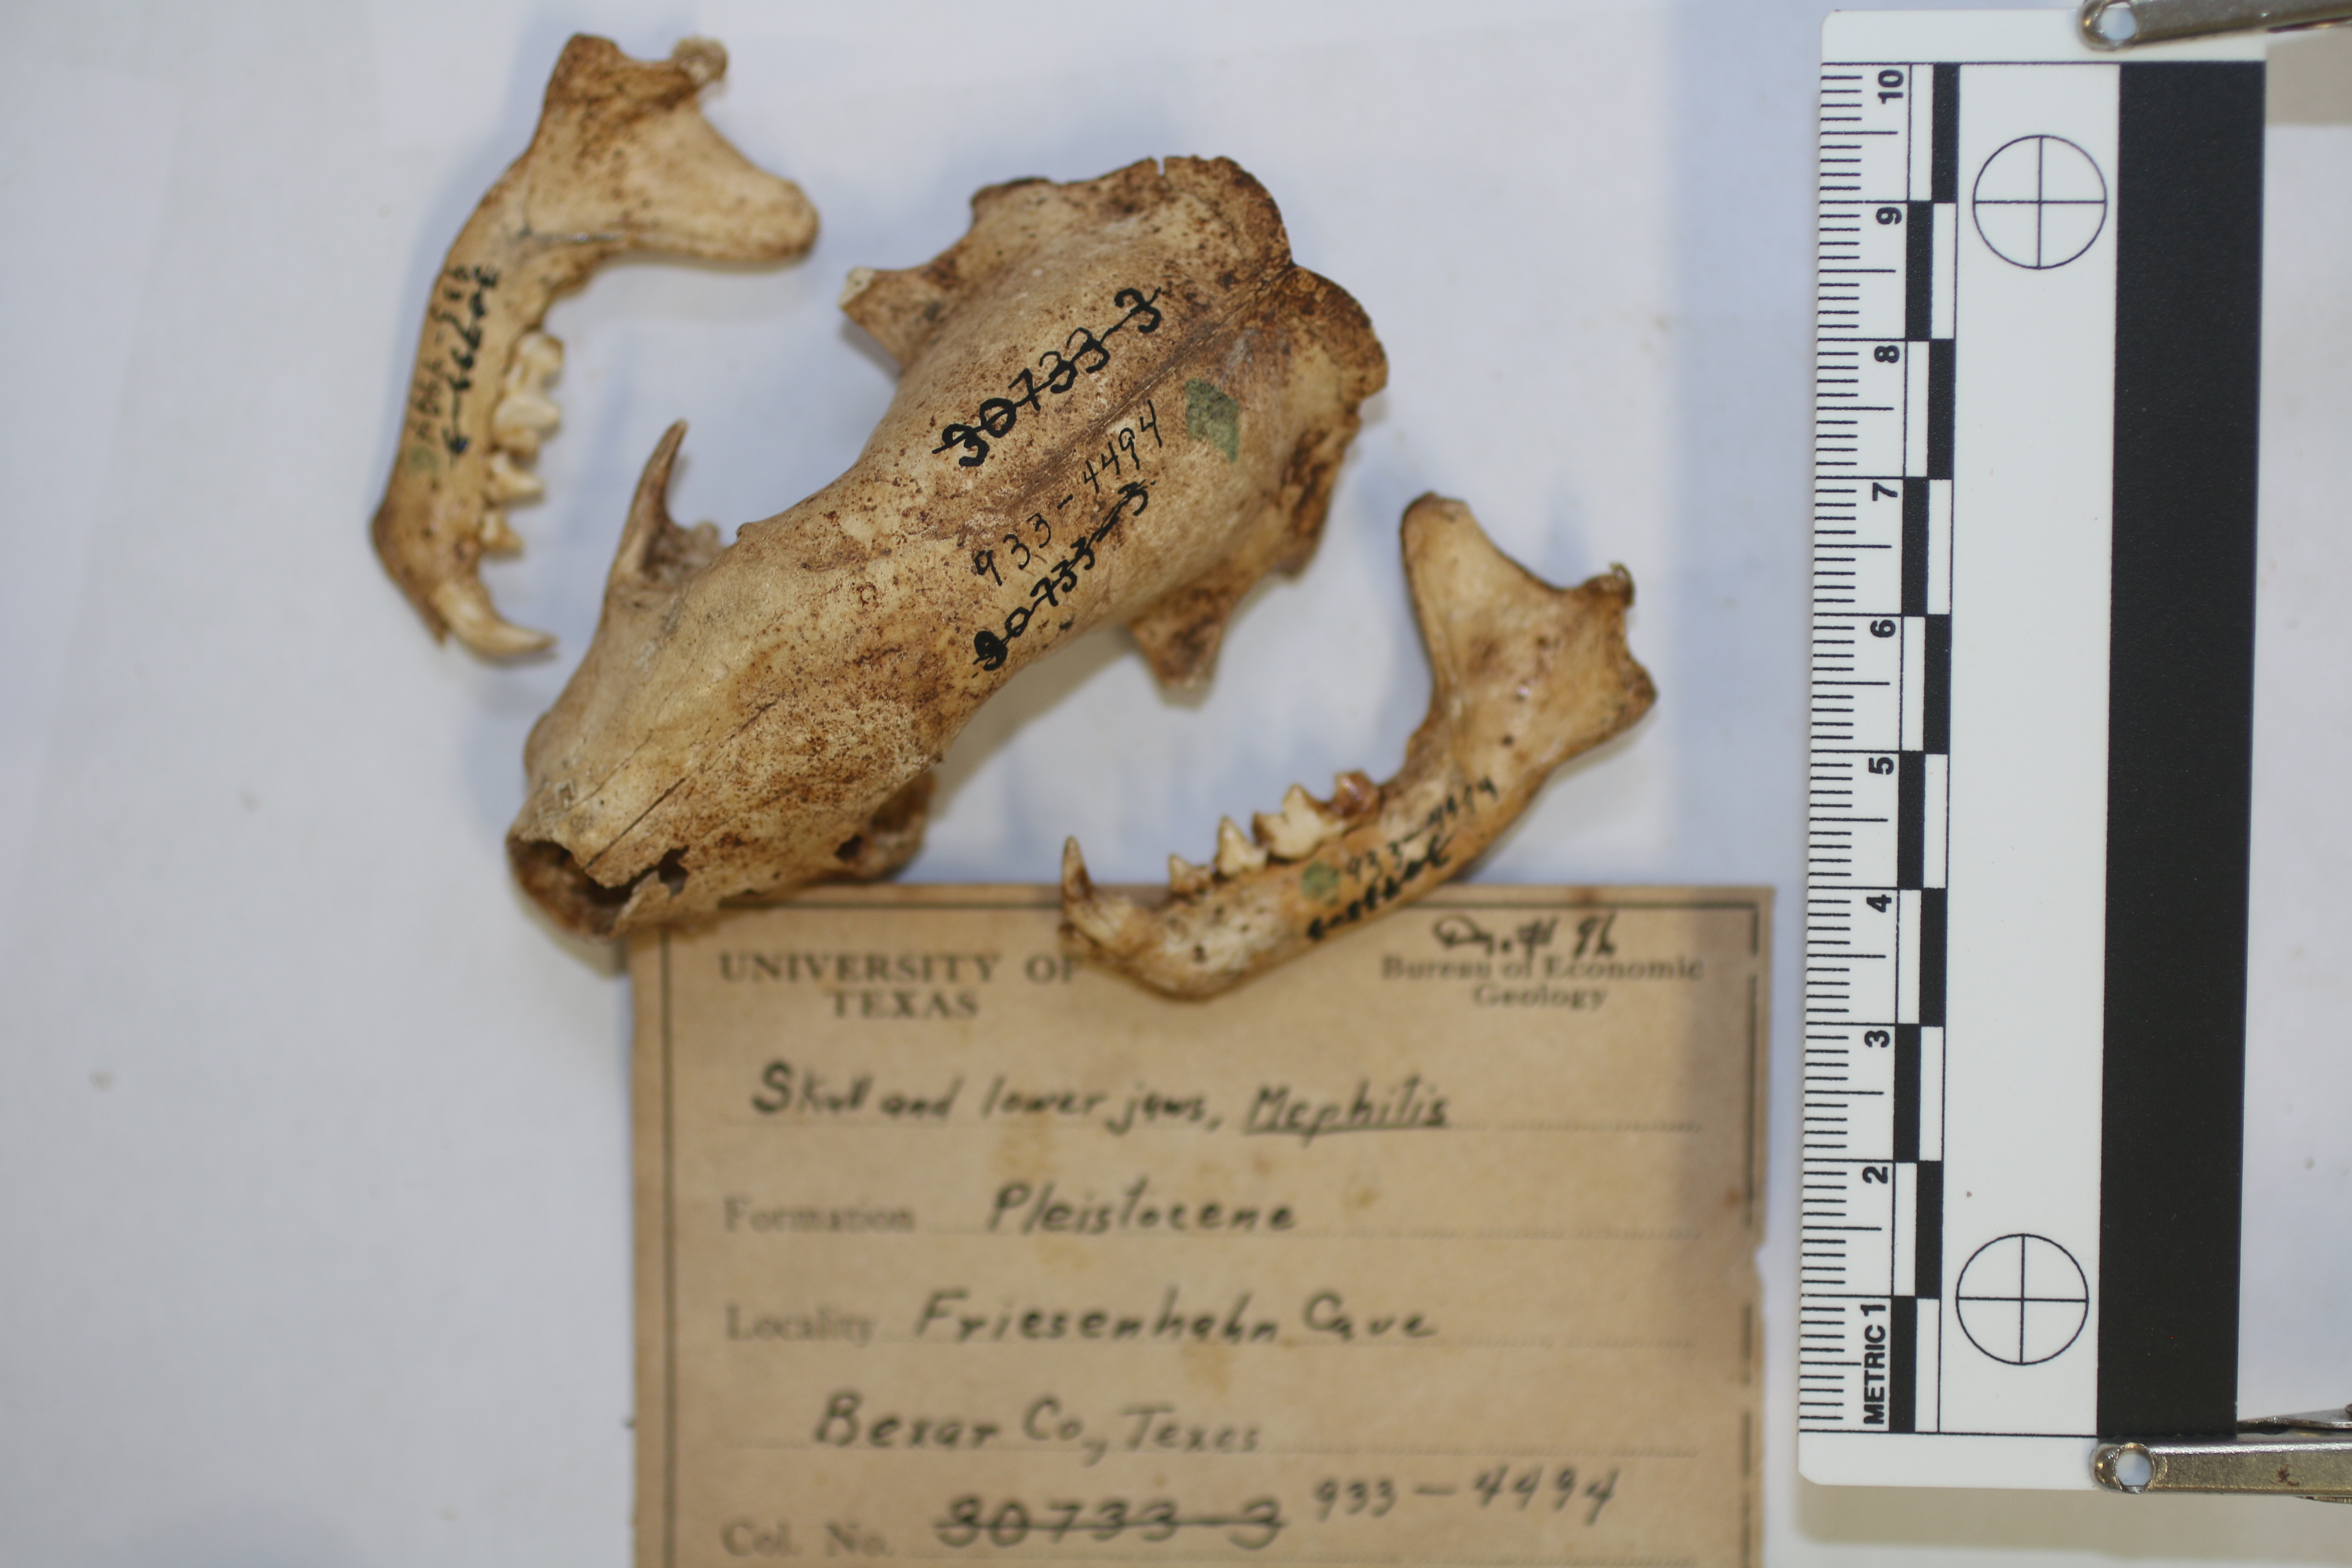 UNIVERSITY OF
TEXAS
Bureau of Economic
Geology
Skull and lower jaws, Mephitis
Formation Pleistocene
Locality Friesenhahn Cave
Bexar Co, Texas
Col. No. 30733-3 933-4494
30733-3
933-4494
30733-3
933-4494
933-4494
METRIC 1 2 3 4 5 6 7 8 9 10